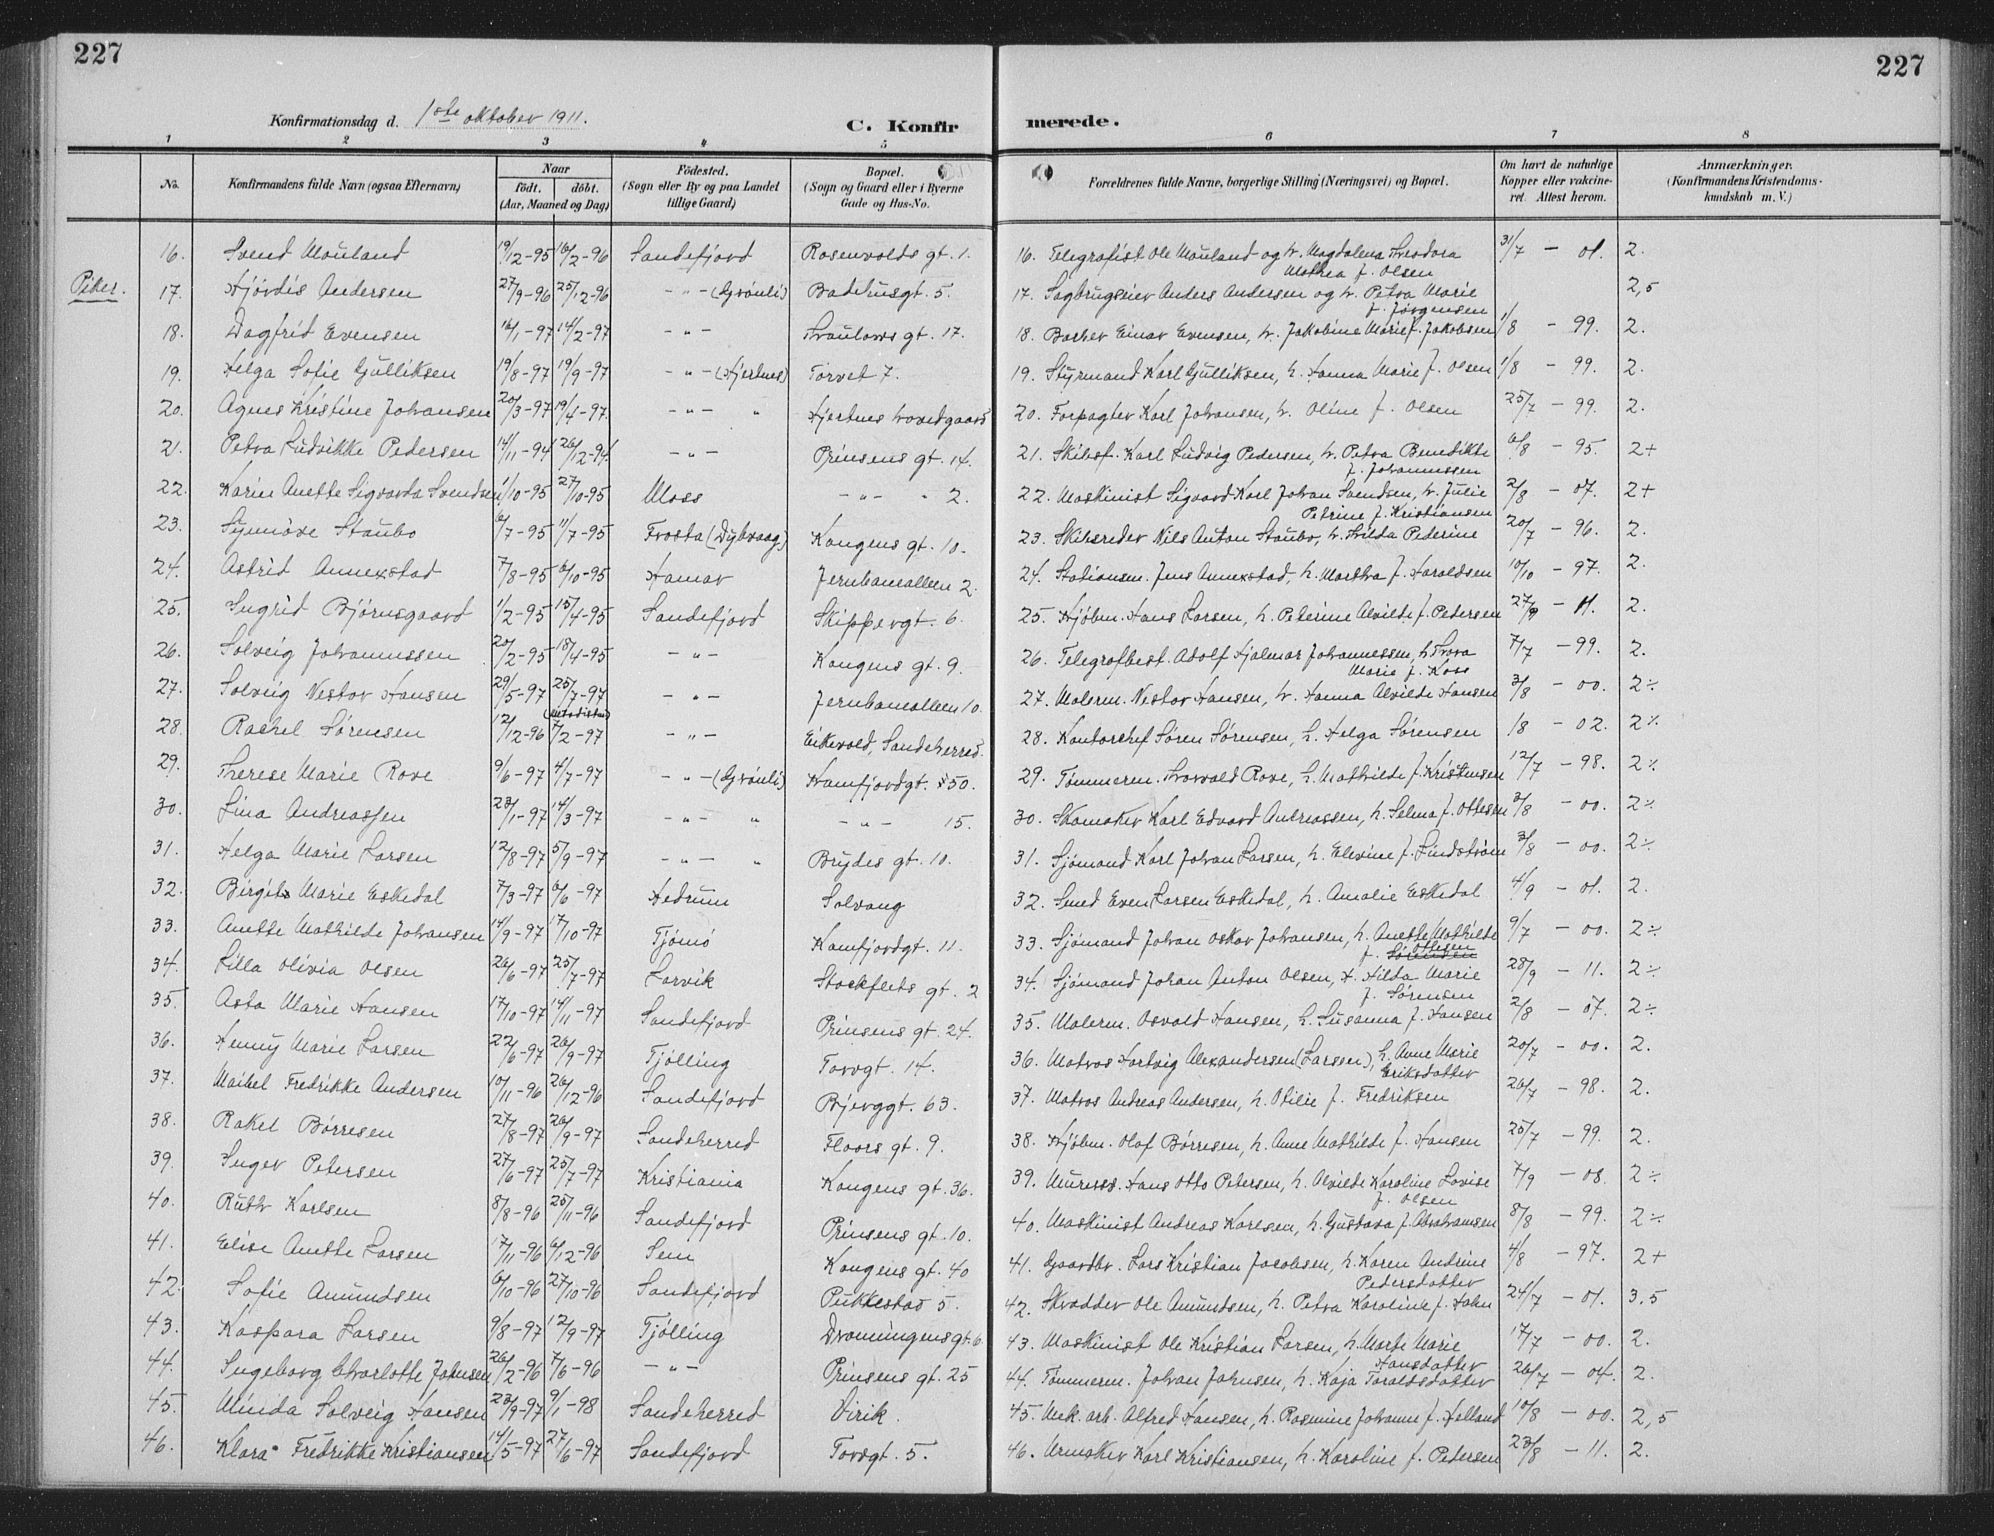 227
227
Konfirmationsdag d. 1ste oktober 1911.
C. Konfir
merede.
1 2 3 4 5 6 7 8
No. Konfirmandens fulde Navn (ogsaa Efternavn) Naar födt. döbt. (Aar, Maaned og Dag) Födested. (Sogn eller By og paa Landet tillige Gaard) Bopæl. (Sogn og Gaard eller i Byerne Gade og Hus-No. Forældrenes fulde Navne, borgerlige Stilling (Næringsvei) og Bopæl. Om havt de naturlige Kopper eller vakcineret. Attest herom. Anmærkninger. (Konfirmandens Kristendomskundskab m. V.)
16. Svend Mouland 19/12-95 16/2-96 Sandefjord Rosenvolds gt. 1. 16. Telegrafist Ole Mouland og h. Magdalena Theodora Mathea f. Olsen 31/7 - 01. 2.
Piker.
17. Hjördis Andersen 27/9-96 25/12-96 - " - (Grönli) Badehusgt. 5. 17. Sagbrugseier Anders Andersen og h. Petra Marie f. Jørgensen 2,5
18. Dagfrid Evensen 16/1-97 14/2-97 - " - Thaulows gt. 17. 18. Barber Einar Evensen, h. Jakobine Marie f. Jakobsen 1/8 - 99. 2.
19. Helga Sofie Gulliksen 19/8-97 19/9-97 - " - (Hjertnes) Torvet 7. 19. Styrmand Karl Gulliksen, h. Hanna Marie f. Olsen 1/8 - 99. 2.
20. Agnes Kristine Johansen 20/3-97 19/4-97. - " - " Hjertnes hovedgaard 20. Forpagter Karl Johansen, h. Oline f. Olsen 25/7 - 99. 2.
21. Petra Ludvikke Pedersen 14/11-94 26/12-94. - " - Prinsens gt. 14. 21. Skibsf. Karl Ludvig Pedersen, h. Petra Benedikte f. Johannessen 6/8 - 95. 2+
22. Karin Anette Sigvarda Svendsen 1/10-95 27/10-95 Moss - " - " 2. 22. Maskinist Sigvard Karl Johan Svendsen, h. Julie Petrine f. Kristiansen 2/8 - 07. 2+
23. Synnöve Staubo 6/7-95 11/7-95 Frosta (Dybvaag) Kongens gt. 10. 23. Skibsreder Nils Anton Staubo, h. Hilda Pederine 20/7 - 96. 2.
24. Astrid Annexstad 7/8-95 6/10-95 Hamar Jernbanealleen 2. 24. Stationsm. Jens Annexstad, h. Martha f. Haraldsen 10/10 - 97. 2.
25. Ingrid Bjørnsgaard 1/2-95 15/4-95 Sandefjord Skippergt. 6. 25. Kjøbm. Hans Larsen, h. Peterine Alvilde f. Pedersen 27/9 - 11. 2.
26. Solveig Johannessen 20/2-95 18/4-95 - " - Kongens gt. 9. 26. Telegrafbest. Adolf Hjalmar Johannessen, h Thora Marie f. Koss 7/7 - 99. 2.
27. Solveig Nestor Hansen 29/5-97 25/7-97 - " - Jernbanealleen 10. 27. Malerm. Nestor Hansen, h. Hanna Alvilde Hansen 3/8 - 00. 2÷
28. Rachel Sørensen 12/12-96 7/2-97 - " - Eikevold, Sandeherred. 28. Kontorchef Søren Sørensen, h. Helga Sørensen /8 - 02. 2÷
29. Therese Marie Rove 9/6-97 4/7-97 - " - (Grönli) Kamfjordgt. 50. 29. Tømmerm. Thorvald Rove, h. Mathilde f. Kristensen 12/7 - 98. 2÷
30. Lina Andreassen 23/1-97 14/3-97 - " - " - " - 15. 30. Skomaker Karl Edvard Andreassen, h. Selma f. Ottesen 3/8 - 00. 2÷
31. Helga Marie Larsen 12/8-97 5/9-97 - " - " Brydes gt. 10. 31. Sjömand Karl Johan Larsen, h. Elevine f. Lindstrøm 3/8 - 00. 2÷
32. Birgit Marie Eskedal 7/3-97 6/6-97 Hedrum Solvang 32. Smed Even Larsen Eskedal, h. Amalie Eskedal 4/9 - 01. 2.
33. Anette Mathilde Johansen 14/9-97 17/10-97 Tjömö Kamfjordgt. 11. 33. Sjömand Johan Oskar Johansen, h. Anette Mathilde f. Ottesen 9/7 - 00. 2÷
34. Lilla Olivia Olsen 26/6-97 25/7-97 Larvik Stockflets gt. 2 34. Sjömand Johan Anton Olsen, h. Hilda Marie f. Sørensen 28/9 - 11. 2÷
35. Asta Marie Hansen 17/10-97 14/11-97 Sandefjord Prinsens gt. 24. 35. Malerm. Osvald Hansen, h. Susanna f. Hansen 2/8 - 07. 2÷
36. Henny Marie Larsen 22/6-97 26/9-97 Tjølling Torvgt. 14. 36. Matros Hartvig Alexandersen (Larsen), h. Anne Marie Eriksdatter 20/7 - 00. 2.
37. Maibel Fredrikke Andersen 10/11-96 26/12-96 Sandefjord Bjerggt. 63. 37. Matros Andreas Andersen, h. Otilie f. Fredriksen 26/7 - 98. 2.
38. Rakel Børresen 27/8-97 26/9-97 Sandeherred Floors gt. 9. 38. Kjøbm. Olaf Børresen, h. Anne Mathilde f. Hansen 25/7 - 99. 2.
39. Inger Petersen 27/6-97 25/7-97 Kristiania Kongens gt. 36. 39. Murmes. Hans Otto Petersen, h. Alvilde Karoline Lovise f. Olsen 7/9 - 08. 2÷
40. Ruth Karlsen 8/8-96 25/11-96 Sandefjord Prinsens gt. 10. 40. Maskinist Andreas Karlsen, h. Gustava f. Abrahamsen 8/8 - 99. 2÷
41. Elise Anette Larsen 17/11-96 6/12-96 Sem Kongens gt. 40 41. Gaardbr. Lars Kristian Jacobsen, h. Karen Andrine Pedersdatter 4/8 - 97. 2+
42. Sofie Amundsen 6/10-96 27/10-96 Sandefjord Pukkestad 5. 42. Skrædder Ole Amundsen, h. Petra Karoline f. Hahn 24/7 - 01. 3,5
43. Kaspara Larsen 9/8-97 12/9-97 Tjölling Dronningens gt. 6 43. Maskinist Ole Kristian Larsen, h. Marte Marie Hansdatter 17/7 - 00. 2.
44. Ingeborg Charlotte Johnsen 26/2-96 7/6-96 - " - Prinsens gt. 25 44. Tømmerm. Johan Johnsen, h. Kaja Taraldsdatter 26/7 - 04. 2.
45. Minda Solveig Hansen 23/9-97 9/1-98 Sandeherred Virik. 45. Mek. arb. Alfred Hansen, h. Rasmine Johanne f. Helland 10/8 - 00. 2,5
46. Klara Fredrikke Kristiansen 14/5-97 27/6-97 Sandefjord Torvgt. 5. 46. Urmaker Karl Kristiansen, h. Karoline f. Pedersen 23/8 - 11. 2.